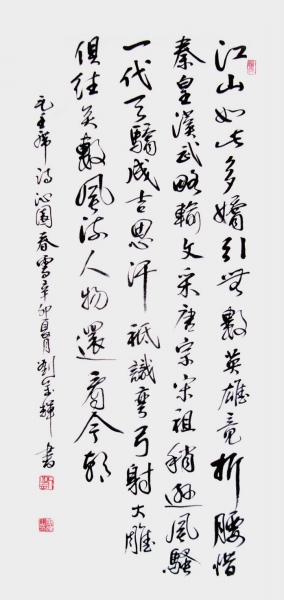 江山如此多嬌引無數英雄竟折腰惜
秦皇漢武略輸文采唐宗宋祖稍遜風騷
一代天驕成吉思汗祗識彎弓射大雕
俱往矣數風流人物還看今朝
毛主席詩沁園春雪辛卯夏月劉金輝書